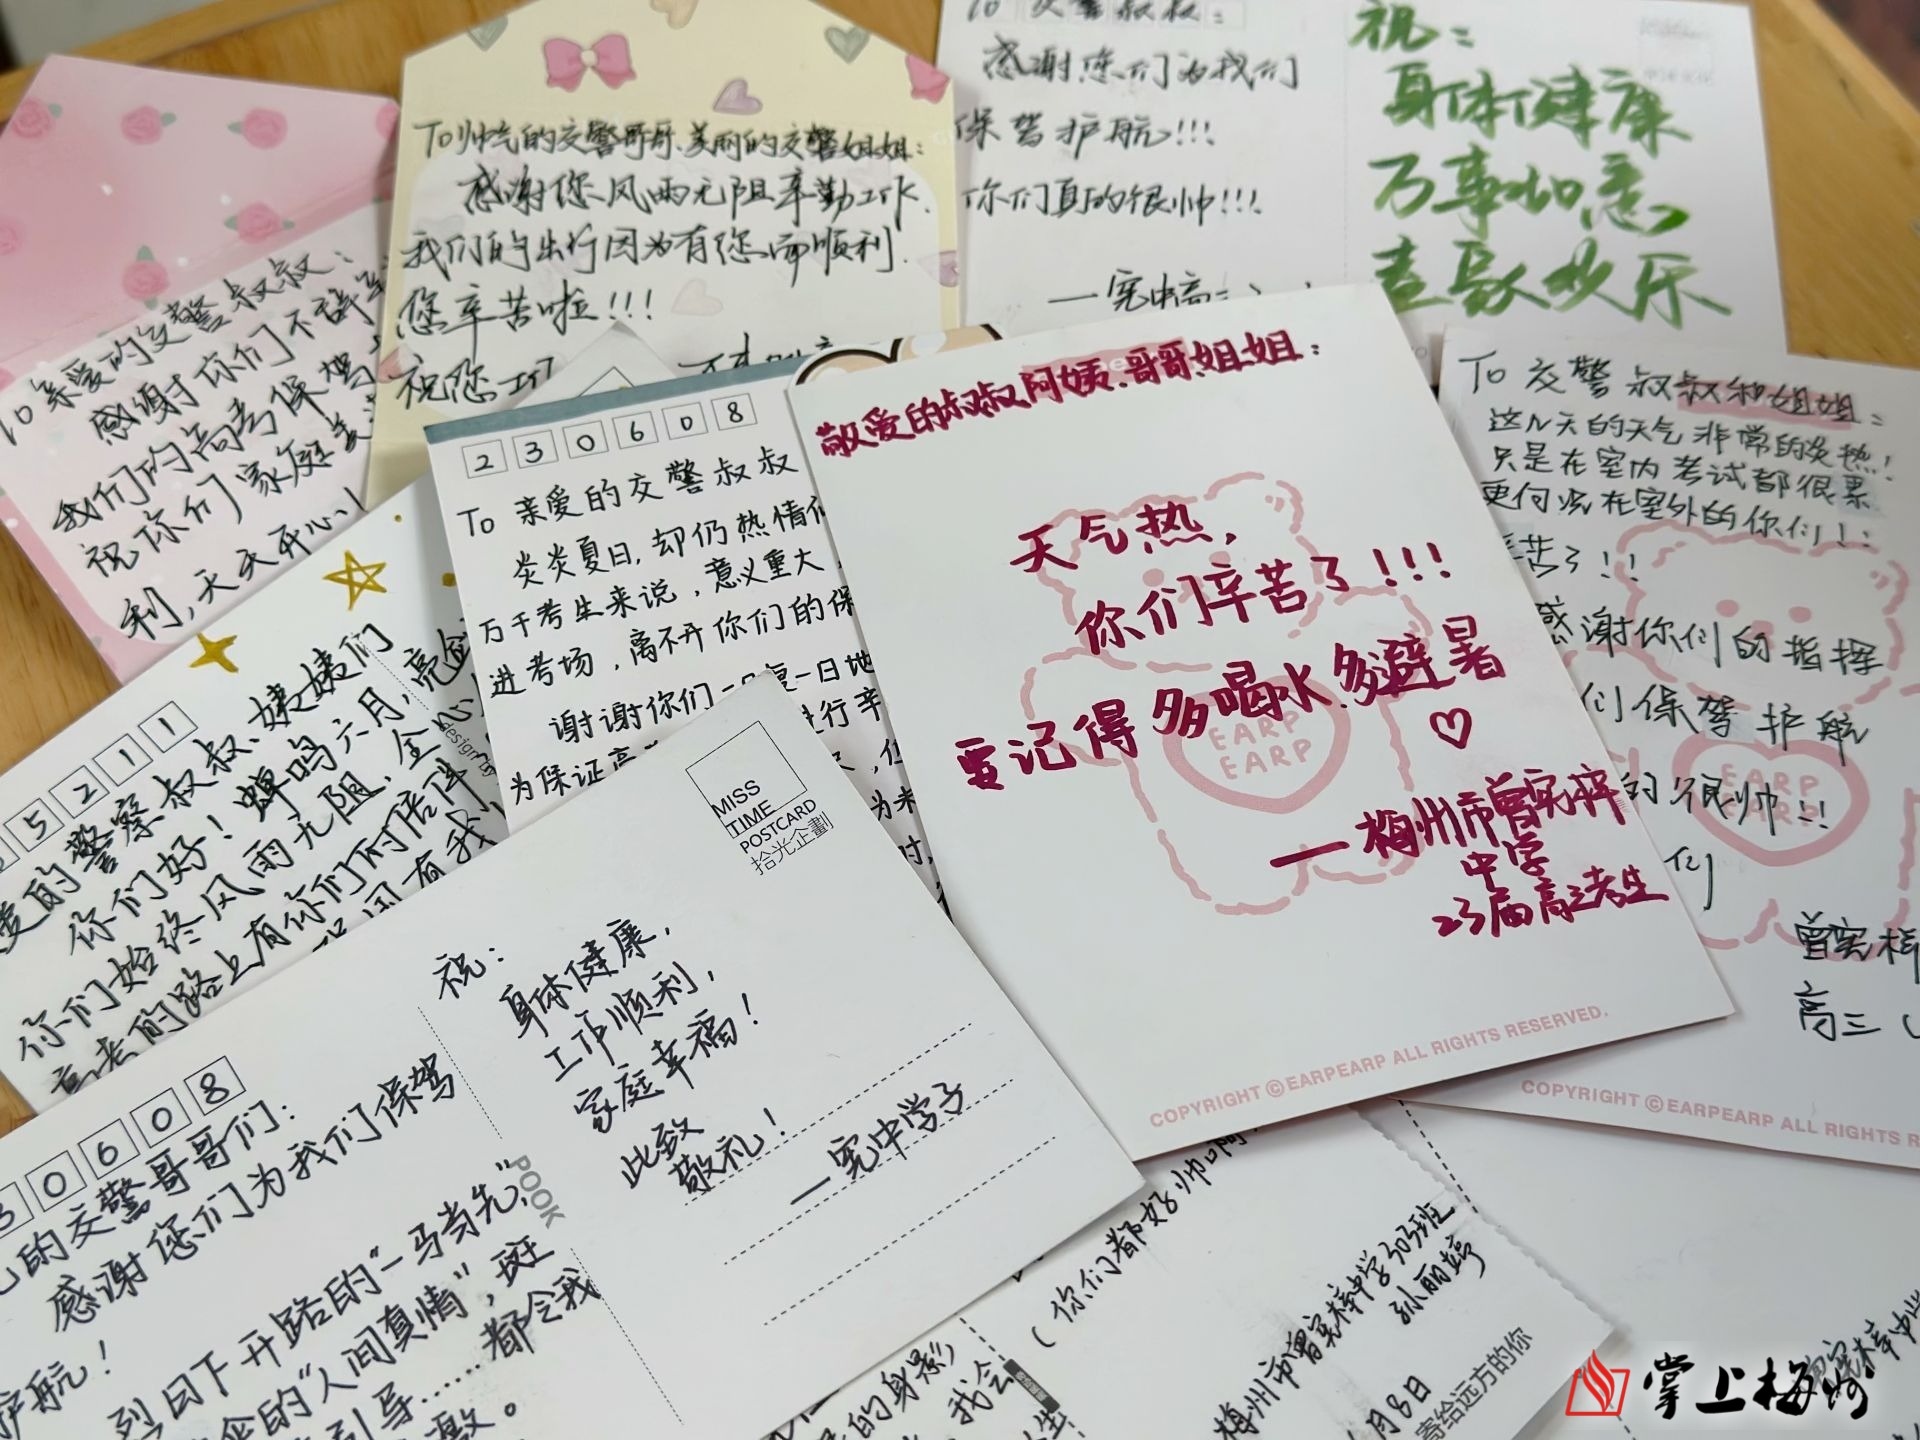 To 亲爱的交警叔叔：
感谢你们不辞
我们的高考保驾
祝你们家庭美
利，天天开心！
To 帅气的交警哥哥、美丽的交警姐姐：
感谢您风雨无阻辛勤工作，
我们的出行因为有您而顺利！
您辛苦啦！！！
祝您工作
To 交警叔叔：
感谢您们为我们
保驾护航！！！
你们真的很帅！！！
—宪中高三
祝：
身体健康
万事如意
喜展欢乐
To 交警叔叔和姐姐：
这几天的天气非常的炎热！
只是在室内考试都很累
更何况在室外的你们！：
辛苦了！！
感谢你们的指挥
们保驾护航
的很帅！！
们
EARP
EARP
曾宪梓
高三（
COPYRIGHT ©EARPEARP ALL RIGHTS R
敬爱的叔叔、阿姨、哥哥、姐姐：
天气热，
你们辛苦了！！！
要记得多喝水、多避暑
♡
EARP
EARP
—梅州市曾宪梓
中学
23届高三考生
COPYRIGHT ©EARPEARP ALL RIGHTS RESERVED.
230608
To 亲爱的交警叔叔
炎炎夏日，却仍热情
万千考生来说，意义重大
进考场，离不开你们的保
谢谢你们一日复一日地
进行辛
为保证高
为未
时，
5211
爱的警察叔叔、姨姨们
你们好！蝉鸣六月，亮金
你们始终风雨九阻，金心
高考的路上有你们的陪伴
有我
design
30608
的交警哥哥们：
感谢您们为我们保驾
护航！
烈日下开路的“一马当先”，
伞的“人间真情”，斑
引导……都令我
激。
POOK
MISS
TIME
POSTCARD
拾光企劃
祝：
身体健康，
工作顺利，
家庭幸福！
此致
敬礼！
—宪中学子
（你们都好帅啊
的身影
我会
梅州市曾宪梓中学303班
孙丽婷
月8日
寄给远方的你
曾宪梓中学
掌上梅州